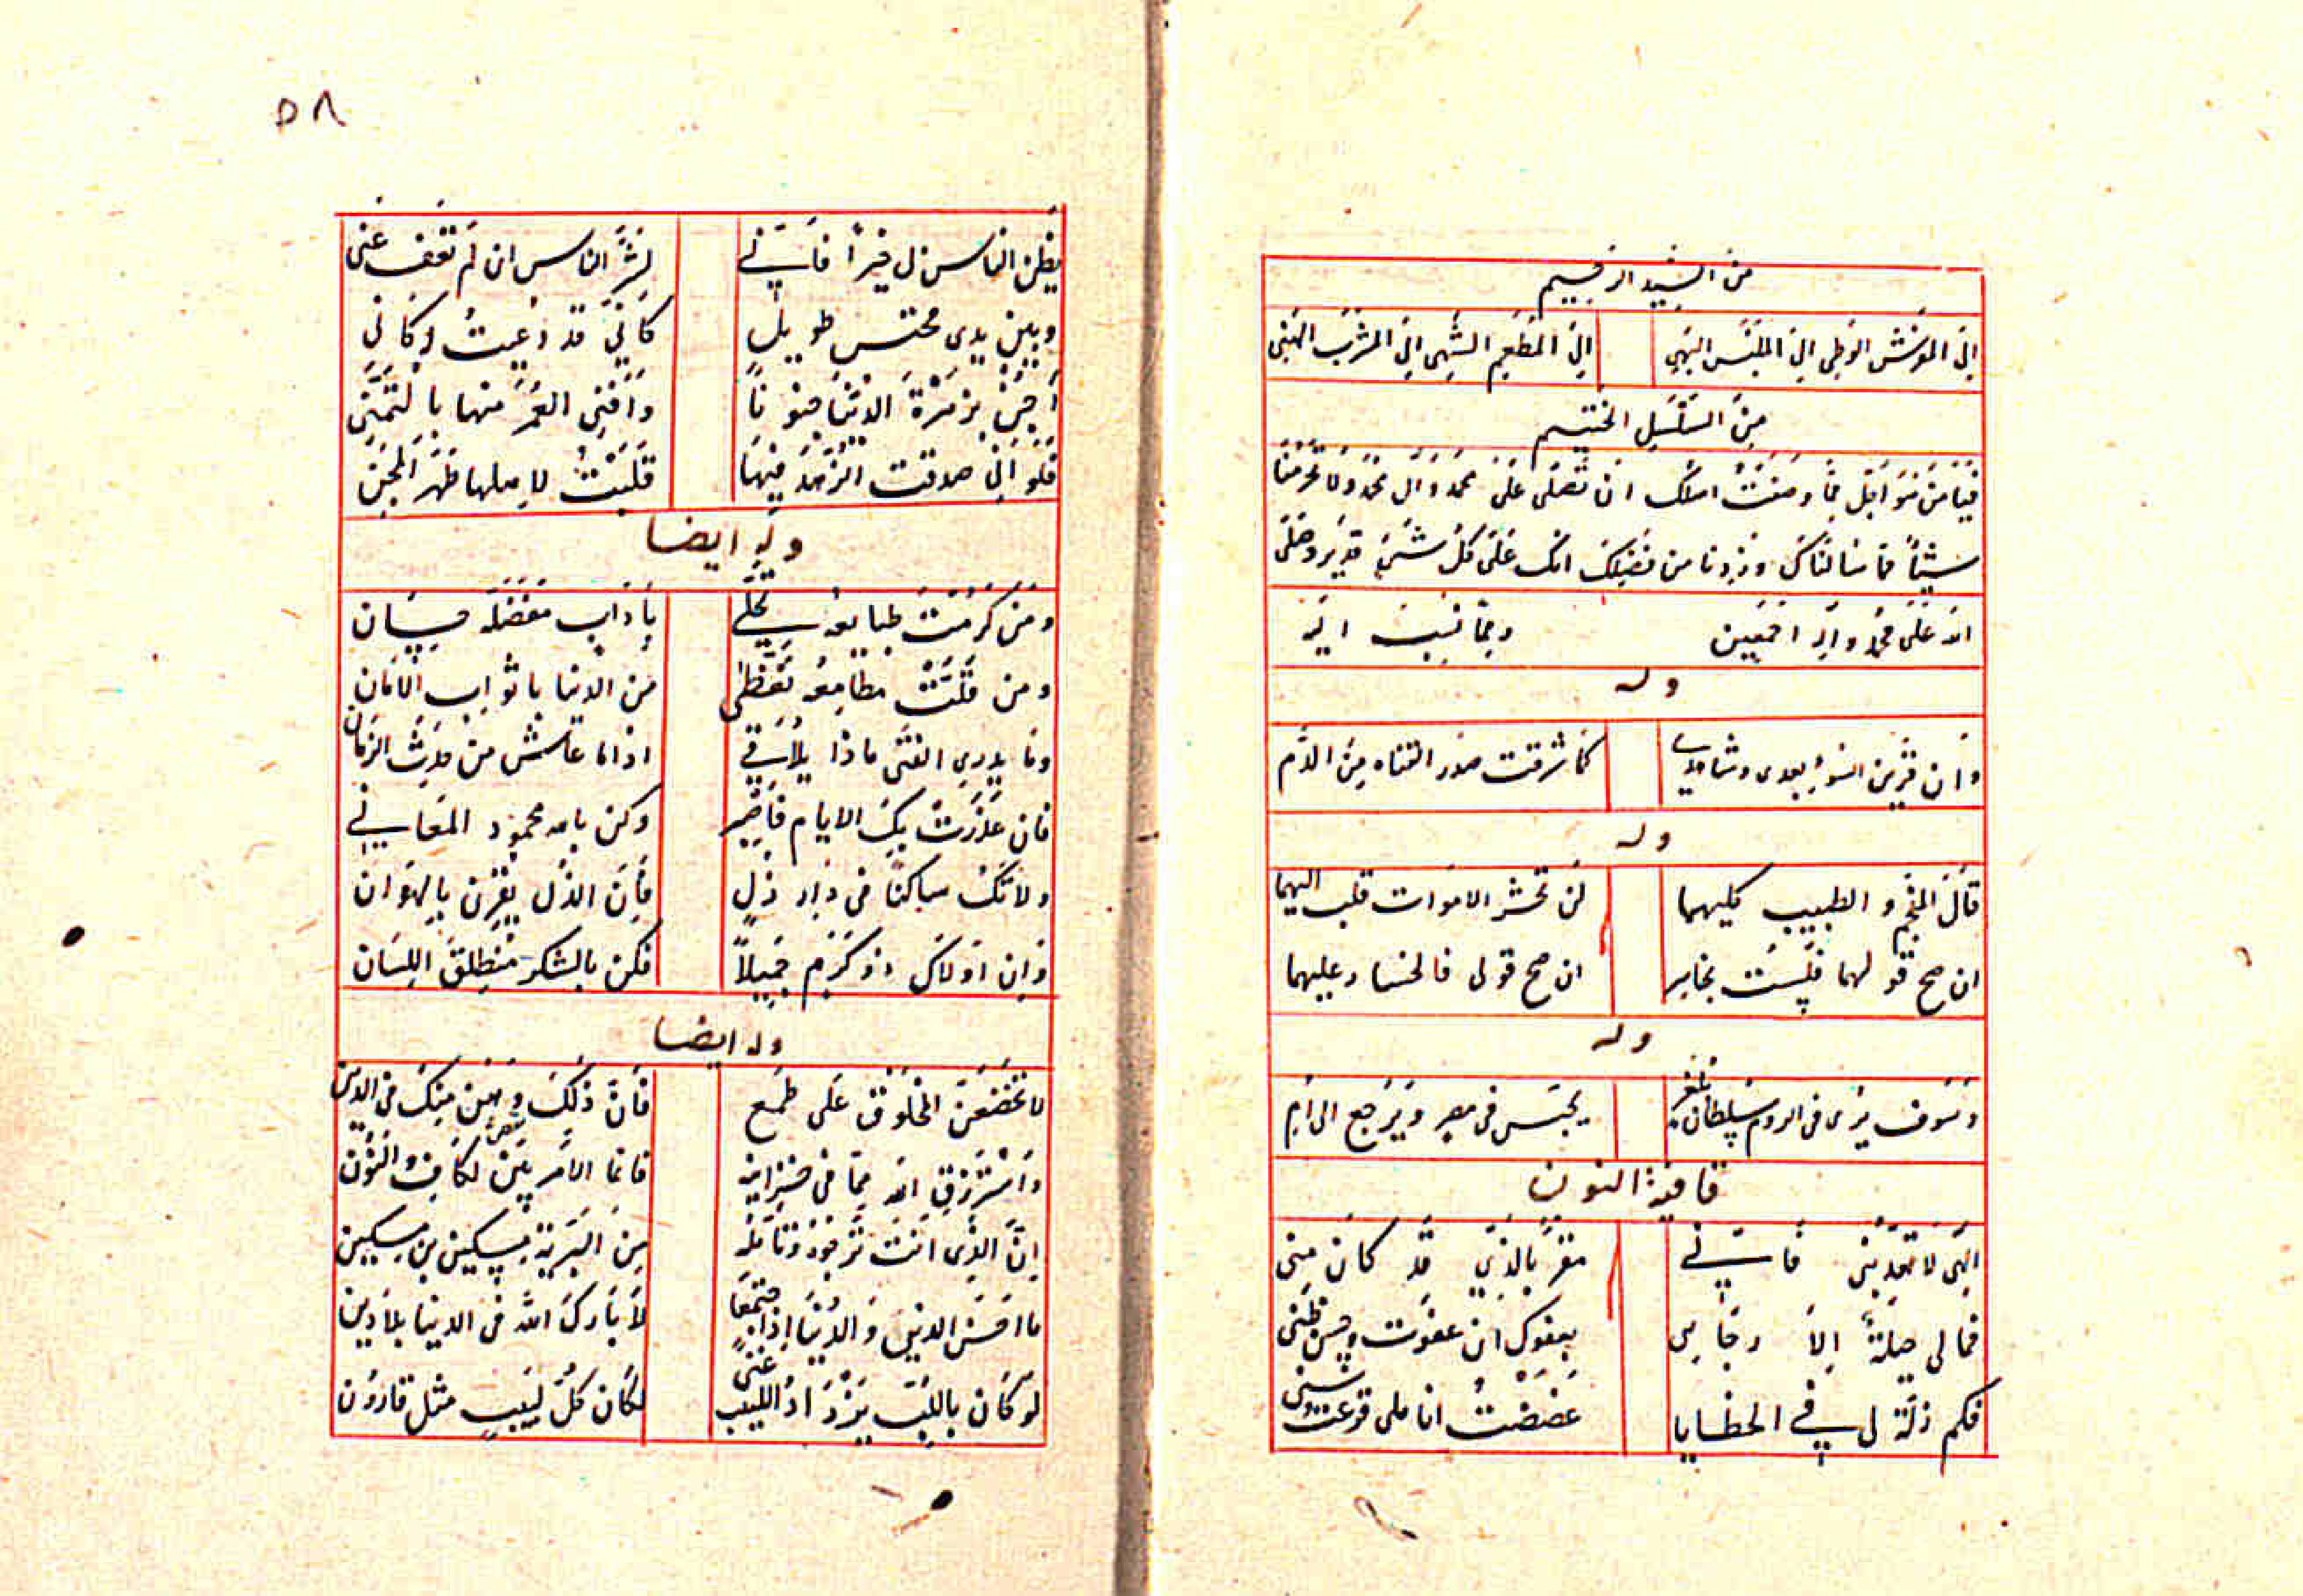 من السيد الرحيم
الى المفرش الوطى الى الملبس البهى الى المطعم الشهى الى المشرب الهنى
من السلسل الختيم
فيا من هو اجل مما وصفت اسئلك ان تصلى على محمد وال محمد ولا تحرمنا
شيئا مما سالناك وزدنا من فضلك انك على كل شئ قدير وصلى
الله على محمد واله اجمعين ومما نسب اليه
وله
كما شرقت صدر القناه من الدم
وله
قال المنجم و الطبيب كليهما لن تحشر الاموات قلت اليهما
ان صح قولهما فلست بخاسر ان صح قولى فالخسار عليهما
وله
وسوف يرى فى الروم سلطان يحبس فى مصر ويرجع الى
قافية النون
الهى لا تعذبنى فانى مقر بالذى قد كان منى
فمالى حيلة الا رجايى بعفوك ان عفوت وحسن ظنى
فكم زلة لى فى الخطايا عضضت اناملى وقرعت سنى
٥٨
يظن الناس لى خيرا فانى لشر الناس ان لم تعف عنى
وبين يدى محتبس طويل كانى قد دعيت له كانى
اجن بزهرة الدنيا جنونا وافنى العمر منها بالتمنى
فلو انى صدقت الزهد فيها قلبت لاهلها ظهر المجن
وله ايضا
ومن كرمت طبايعه تحلى باداب مفضله حسان
ومن قلت مطامعه تغطى من الدنيا باثواب الامان
وما يدرى الفتى ماذا يلاقى اذا ما عاش من حدث الزمان
فان غدرت بك الايام فاصبر وكن بالله محمود المعانى
ولا تك ساكنا فى دار ذل فان الذل يقرن بالهوان
وان اولاك ذو كرم جميلا فكن بالشكر منطلق اللسان
وله ايضا
لا تخضعن لمخلوق على طمع فان ذلك وهن منك فى الدين
واسترزق الله مما فى خزاينه فانما الامر بين الكاف والنون
ان الذى انت ترجوه وتامله من البرية مسكين بن مسكين
ما احسن الدين والدنيا اذا اجتمعا لا بارك الله فى الدنيا بلا دين
لو كان باللب يزداد اللبيب غنى لكان كل لبيب مثل قارون